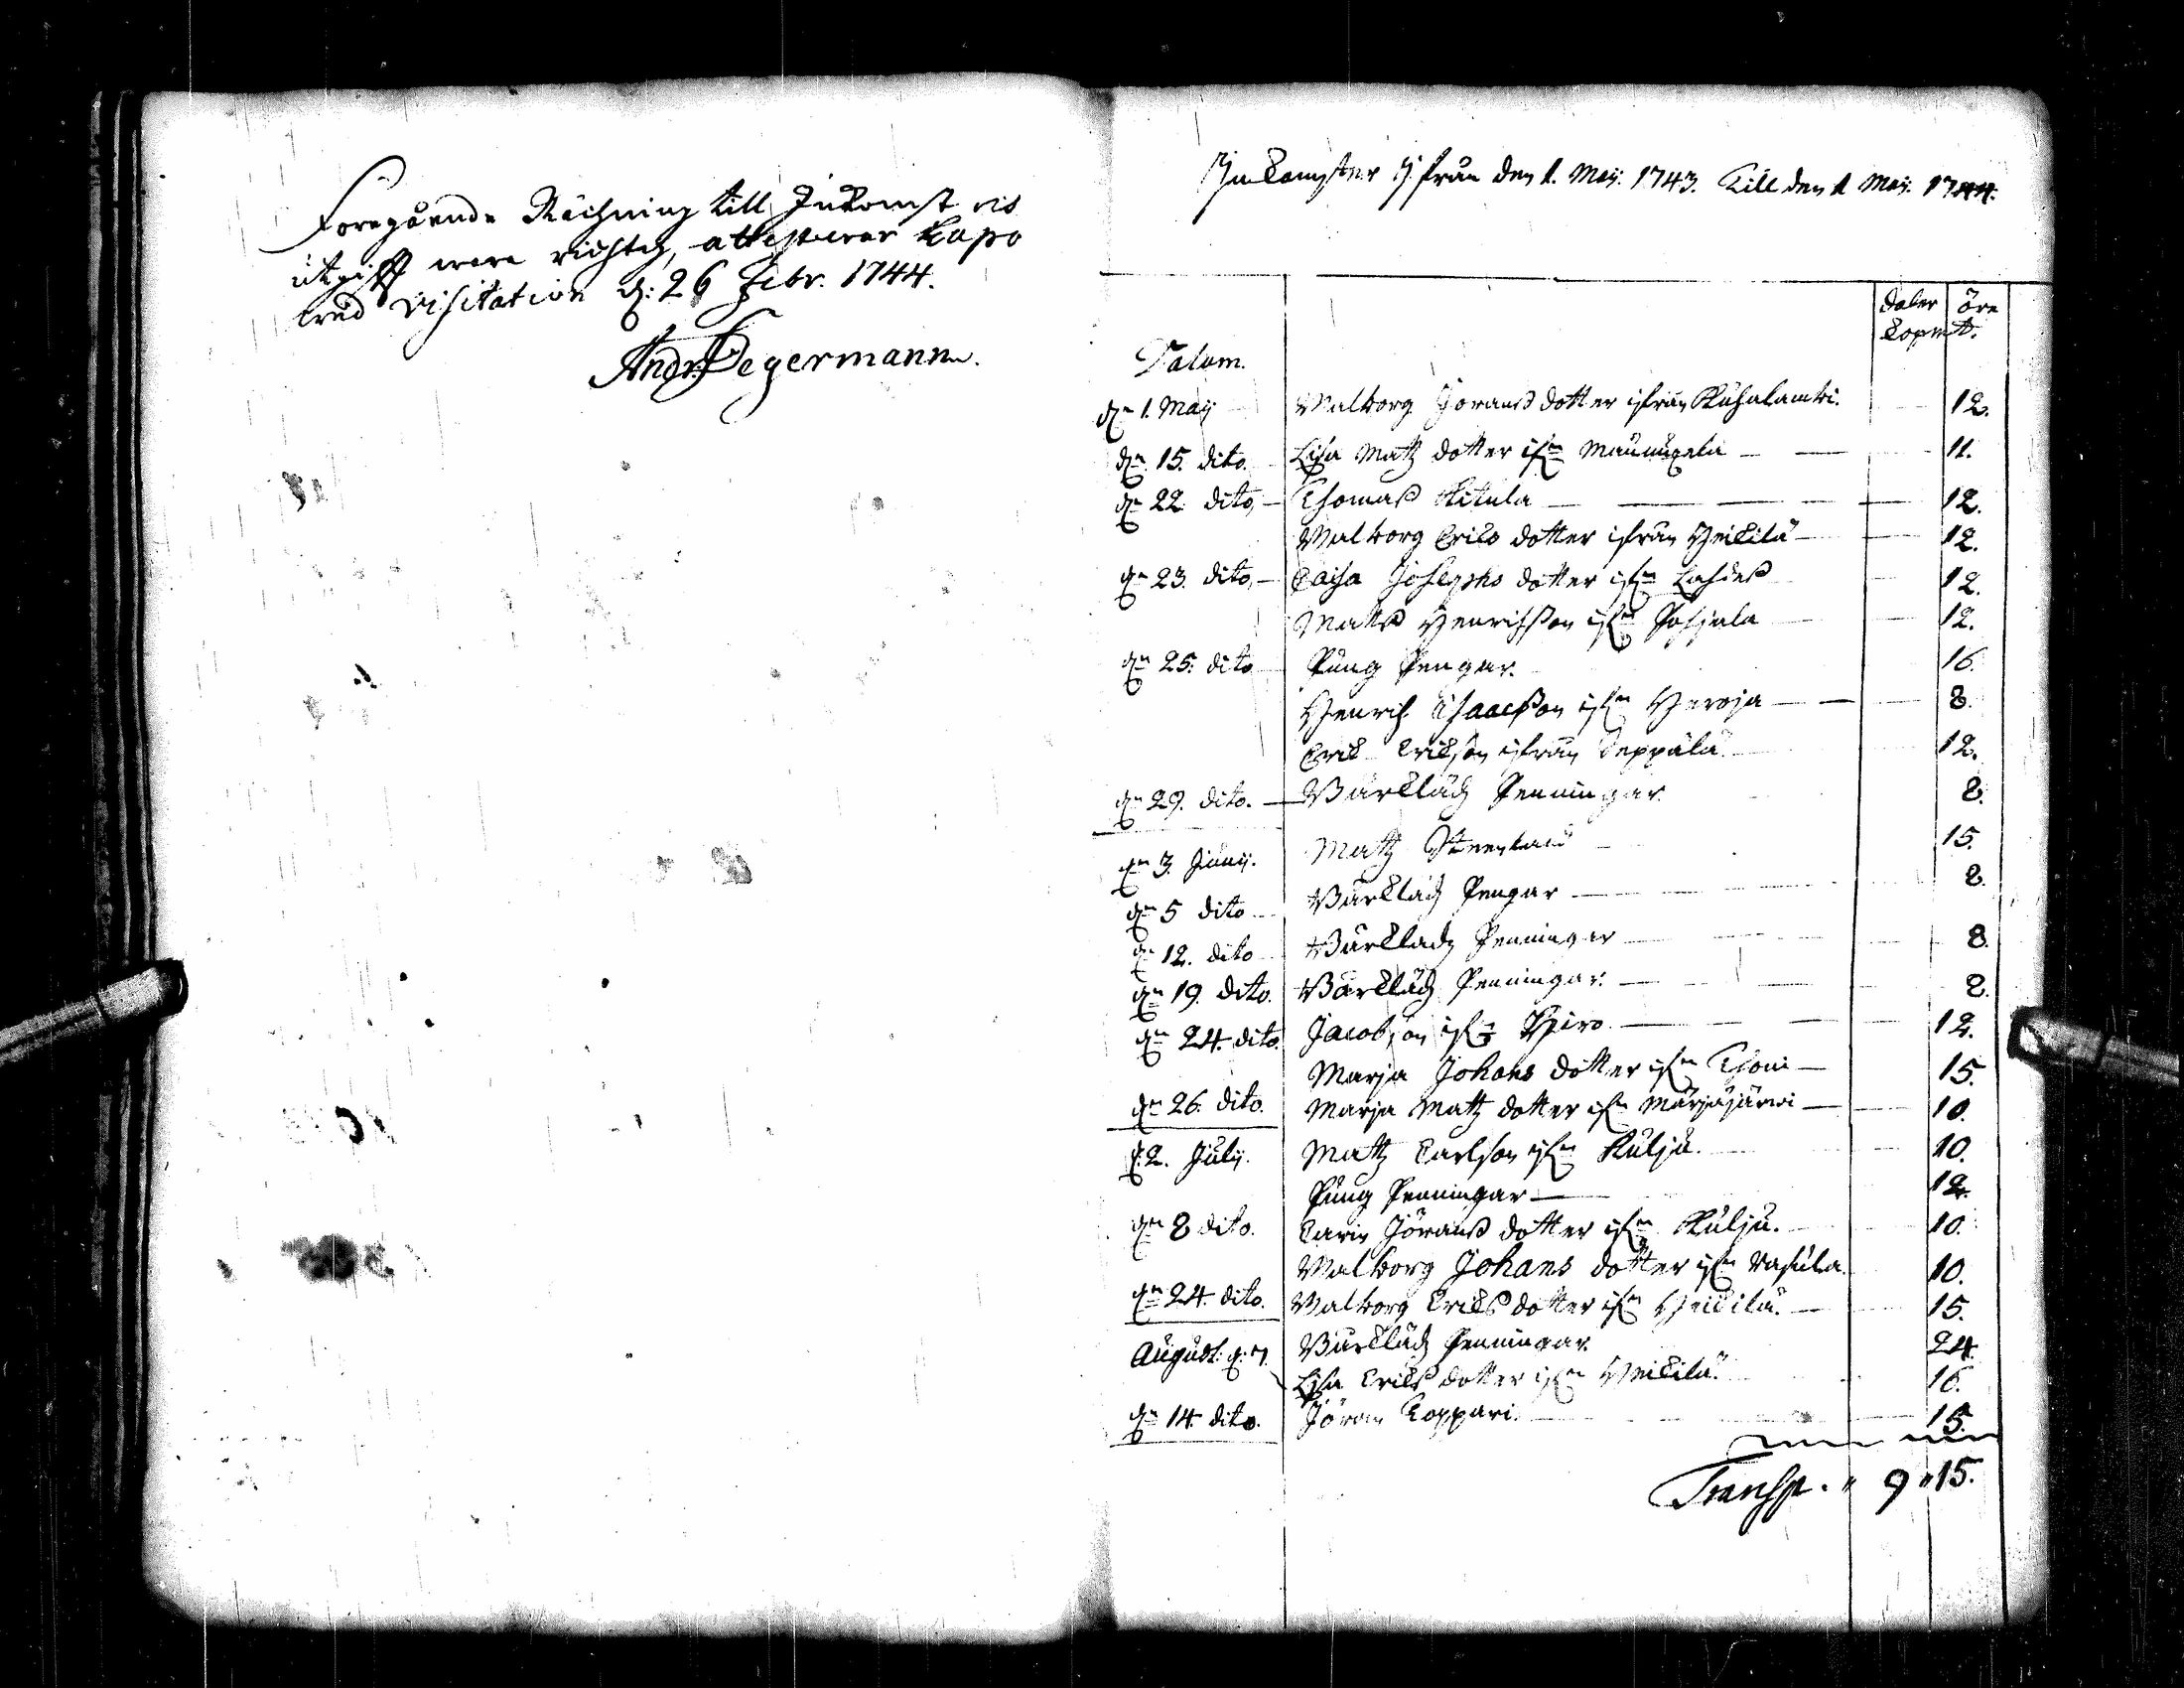 Foregående Räckning till Inkomst och
utgifft wara richtig, attesterar Lapo
wid Visitation d: 26 Febr. 1744.
And: Tegermann.
Inkomster ifrån den 1. Maij. 1743. till den 1 Maij. 1744.
daler öre
kopmt.
Datum.
dn 1. Maij Walborg Jöranss dotter ifrån 12.
dn. 15. dito. Lisa Matz dotter ifrn 11.
dn 22. dito, Thomas 12.
Walborg Erics dotter ifrån Heickilä 12.
dn 23. dito, Caisa Josephs dotter ifrn 12.
Matts Henrichsson ifrn Pohjala 12.
dn 25. dito Pung Pengar. 16.
Henrich Isaacsson ifrn Heroja 8.
Erik Erikson ifrån Seppälä 12.
dn 29. dito. Bårklädz Penningar. 8.
dn 3. Junij. Matz 15.
dn 5 dito Bårklädz Pengar 8.
dn 12. dito Bårklädz Penningar 8.
dn 19. dito. Bårklädz Penningar. 8.
dn 24. dito. Jacobson ifrn 12.
Marja Johans dotter ifrn Thoni 15.
dn 26. dito. Marja Matz dotter ifrn Märjäjärwi 10.
d. 2. Julij. Matz Carlson ifrn Kulju. 10.
Pung Penningar 12.
dn 8 dito. Carin Jöranss dotter ifrn Kulju. 10.
Walborg Johans dotter ifrn 10.
dn 24. dito. Walborg Ericks dotter ifrn Heickilä. 15.
August: d: 7. Bårklädz Penningar. 24.
Lisa Ericks dotter ifrn Heickilä 16.
dn 14. dito. Jöran Koppari. 15.
Transp. " 9 " 15.